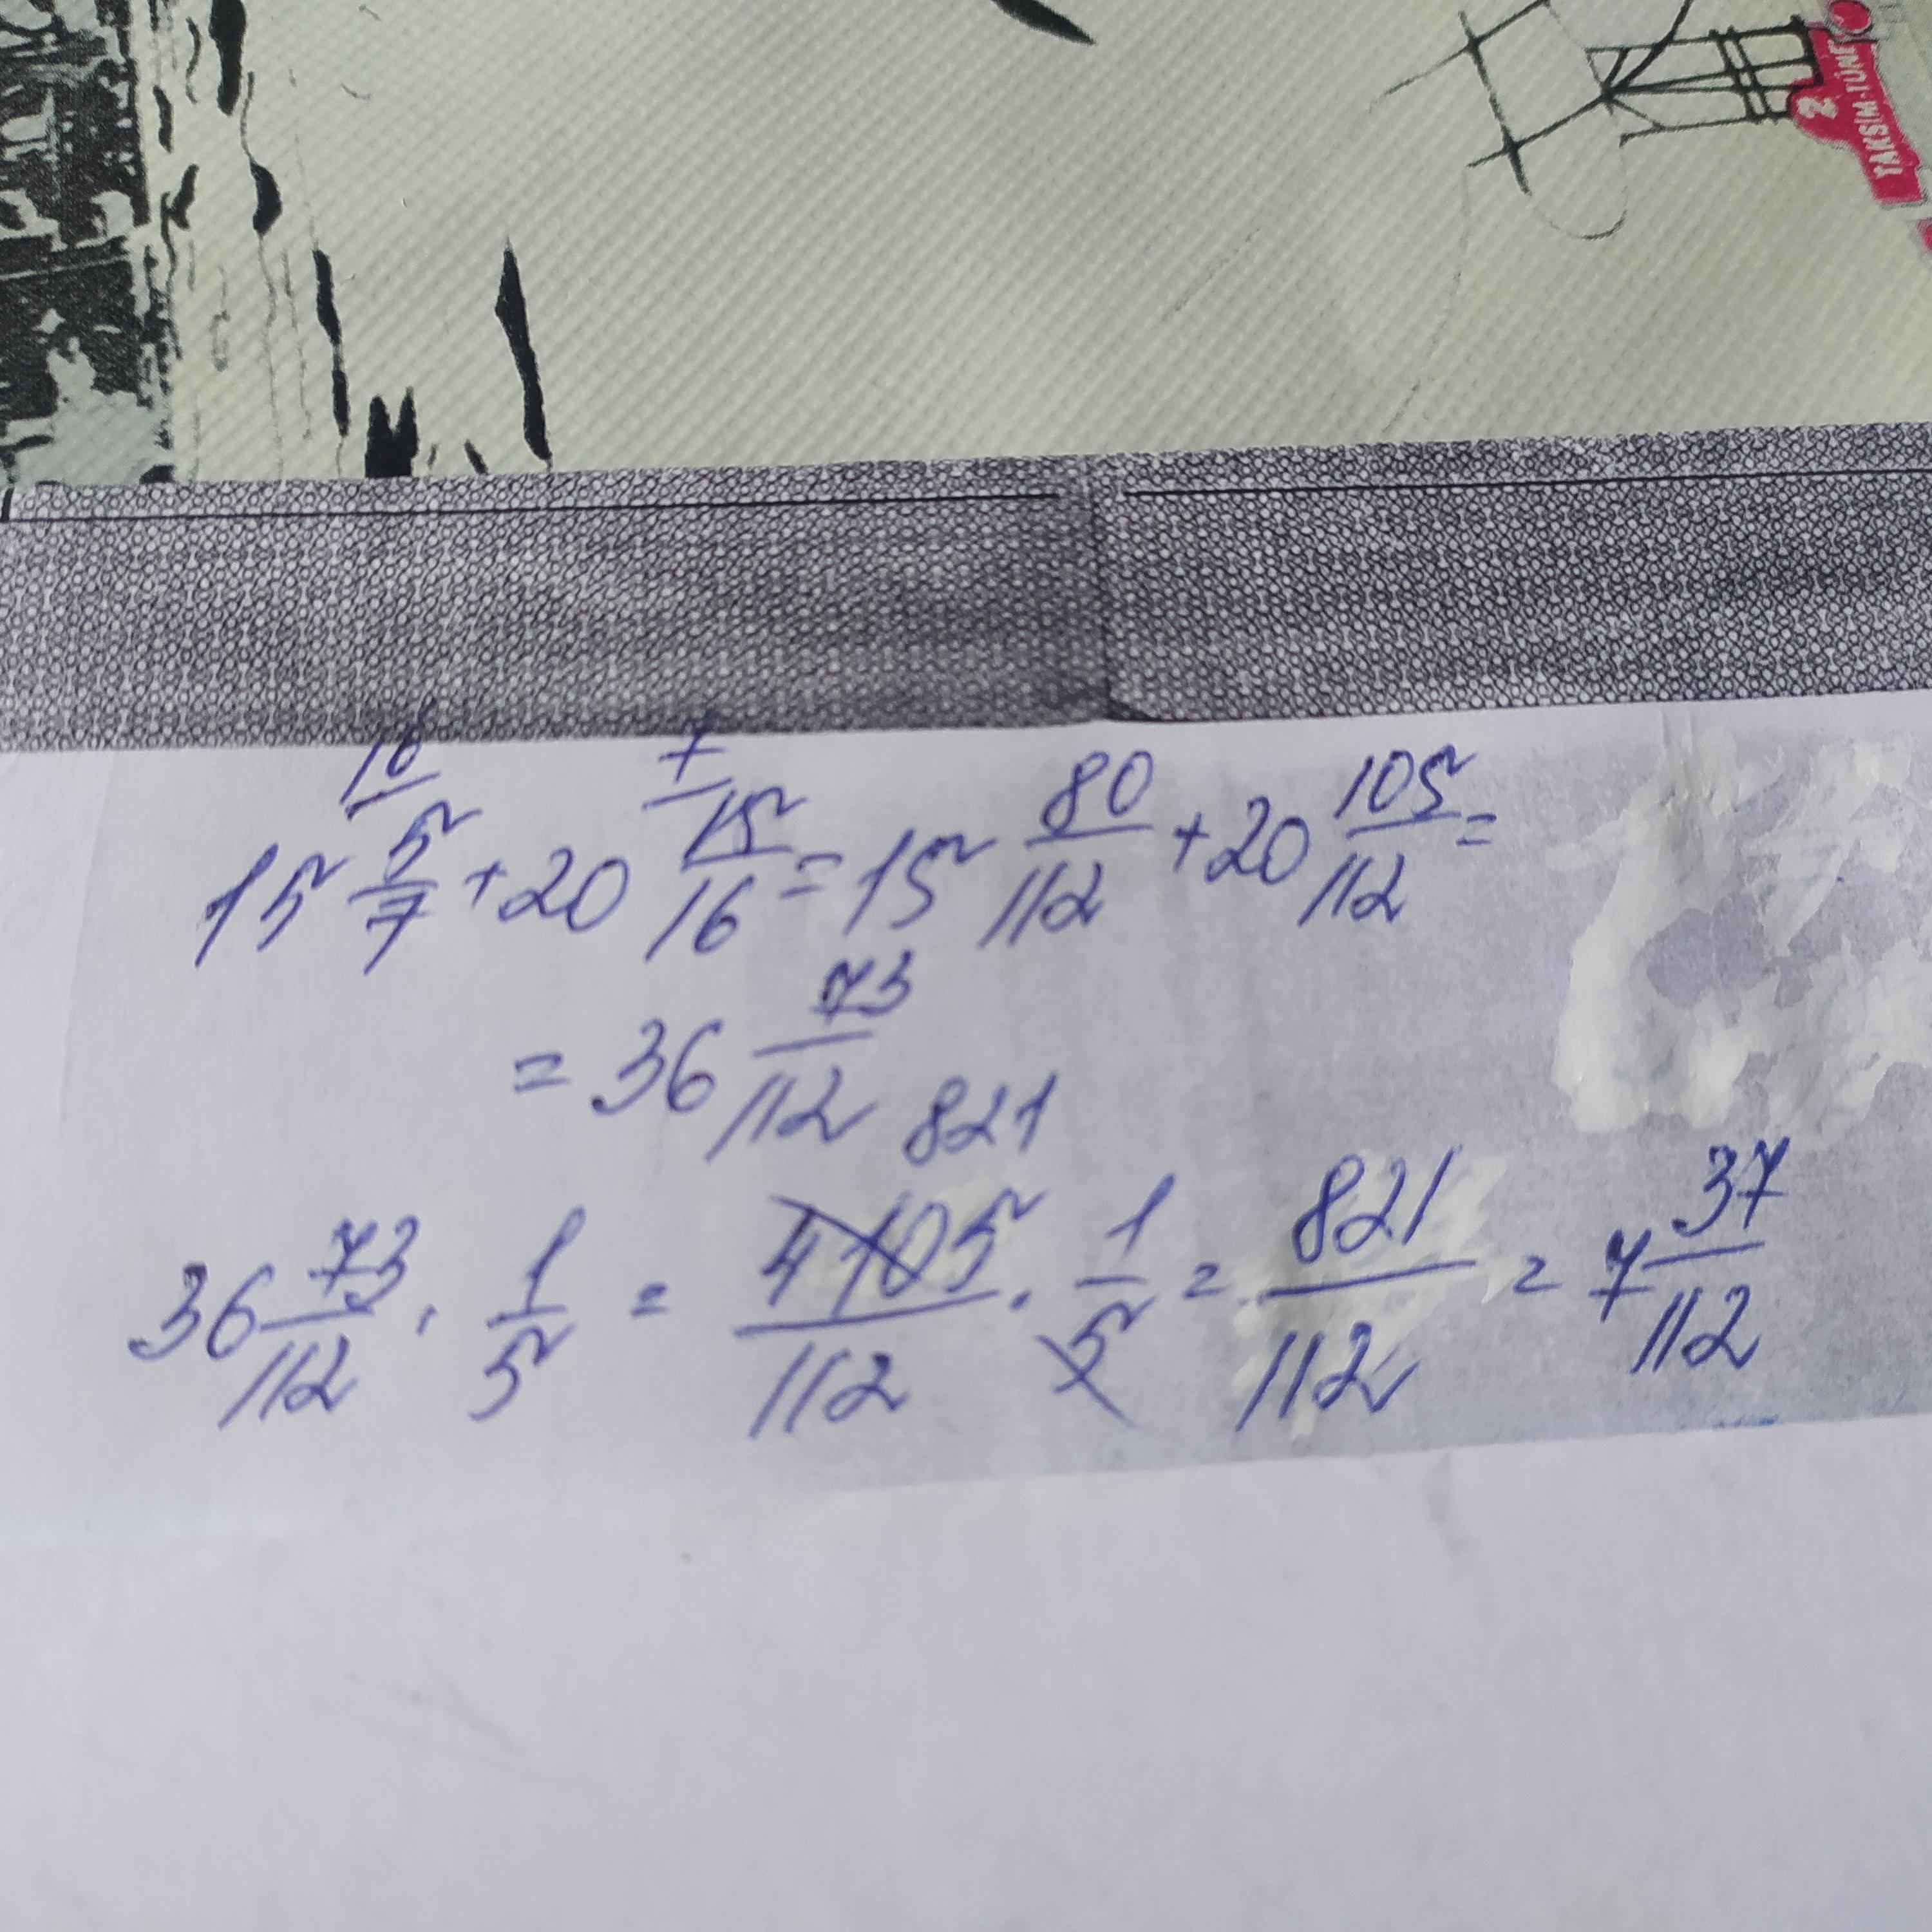 2
TAKSIM-TÜNEL
15 16/ 5/7 + 20 7/ 15/16 = 15 80/112 + 20 105/112 =
= 36 73/112
821
36 73/112 · 1/5 = 4105/112 · 1/5 = 821/112 = 7 37/112